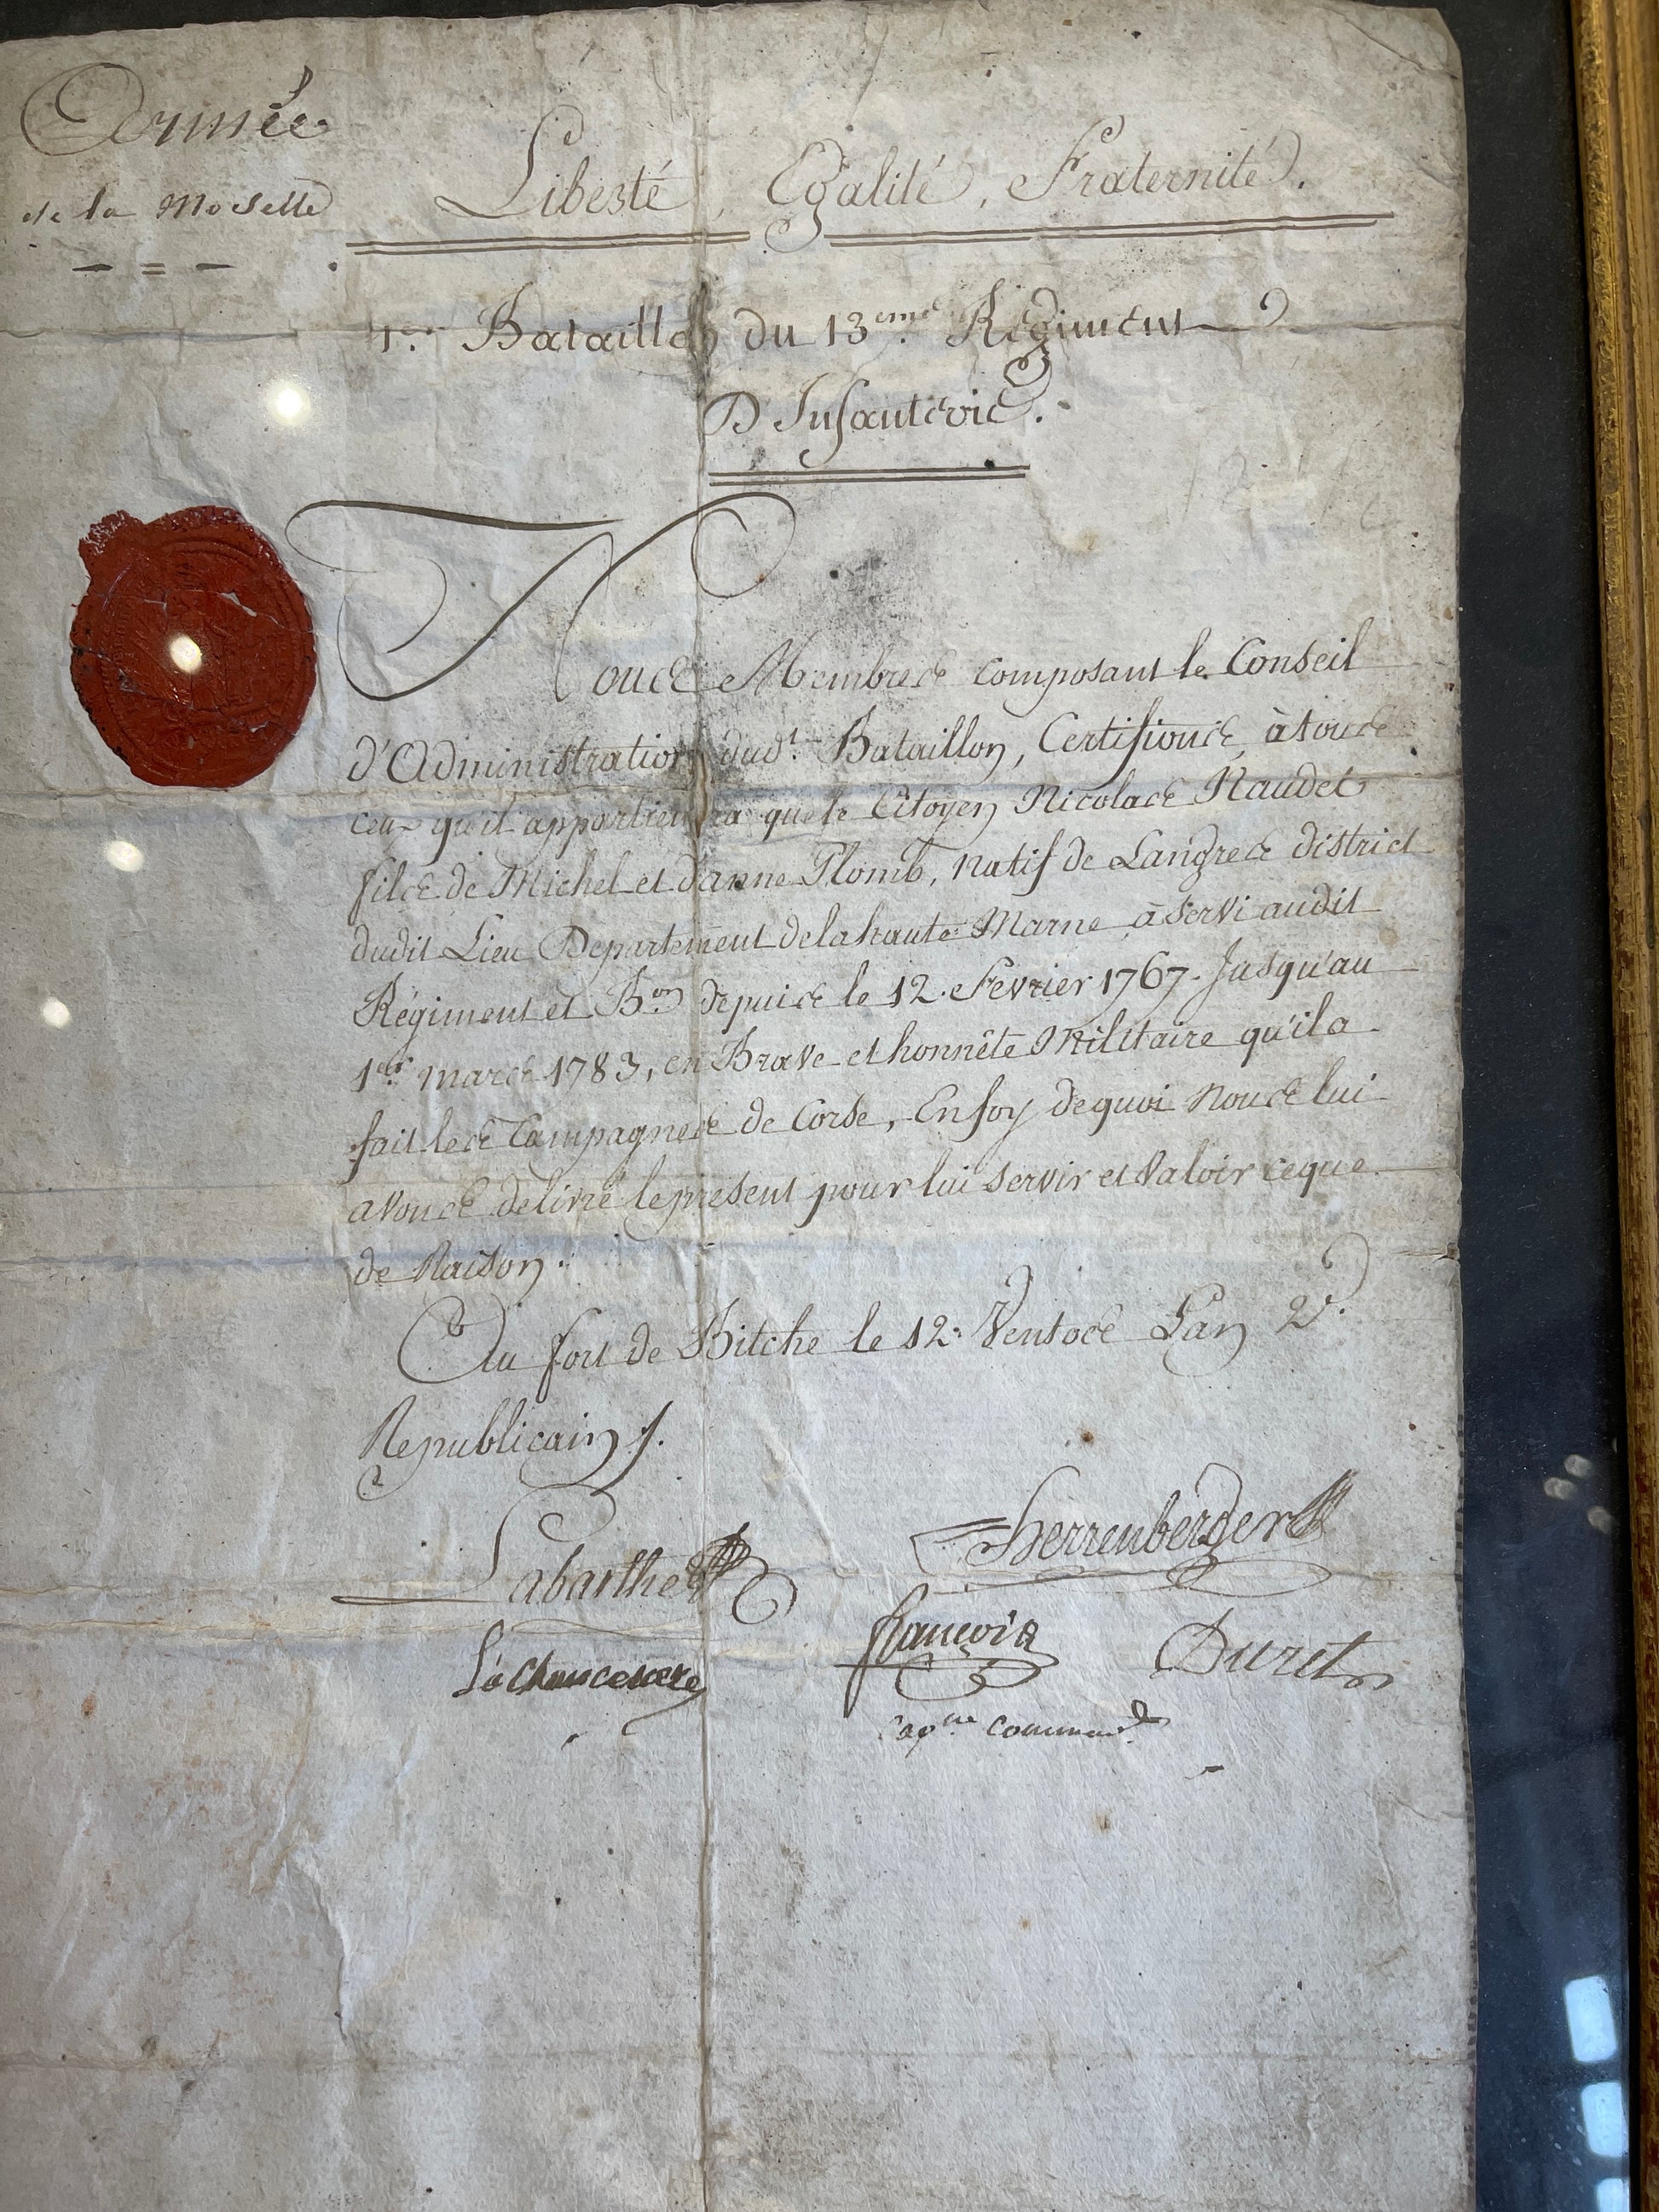 Armée
de la Moselle
Liberté, Egalité, Fraternité.
1er. Bataillon du 13eme. Régiment
D Infanterie.
Nous Membres composant le Conseil
d'Administration dudt. Bataillon, Certifions, à tous
ceux qu'il appartiendra que le Citoyen Nicolas Naudet
fils de Michel et d'anne Plomb, natif de Langres district
dudit Lieu Departement de la haute Marne à servi audit
Régiment et Bon depuis le 12. Fevrier 1767. Jusqu'au
1er. mars 1783, en Brave et honnête Militaire qu'il a
fait les Campagnes de Corse, En foy de quoi nous lui
avons delivré le present pour lui servir et Valoir ce que
de Raison.
Au fort de Bitche le 12. Ventose L'an 2e.
Republicain
Herrenberger
Labarthe
françois
Duret
capne commandt